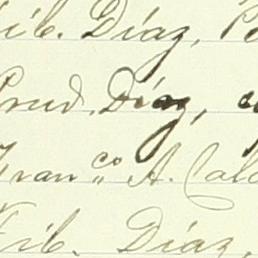 ib. Díaz,
Prud. Díaz,
Fran.co A. Cal
Tib. Díaz,